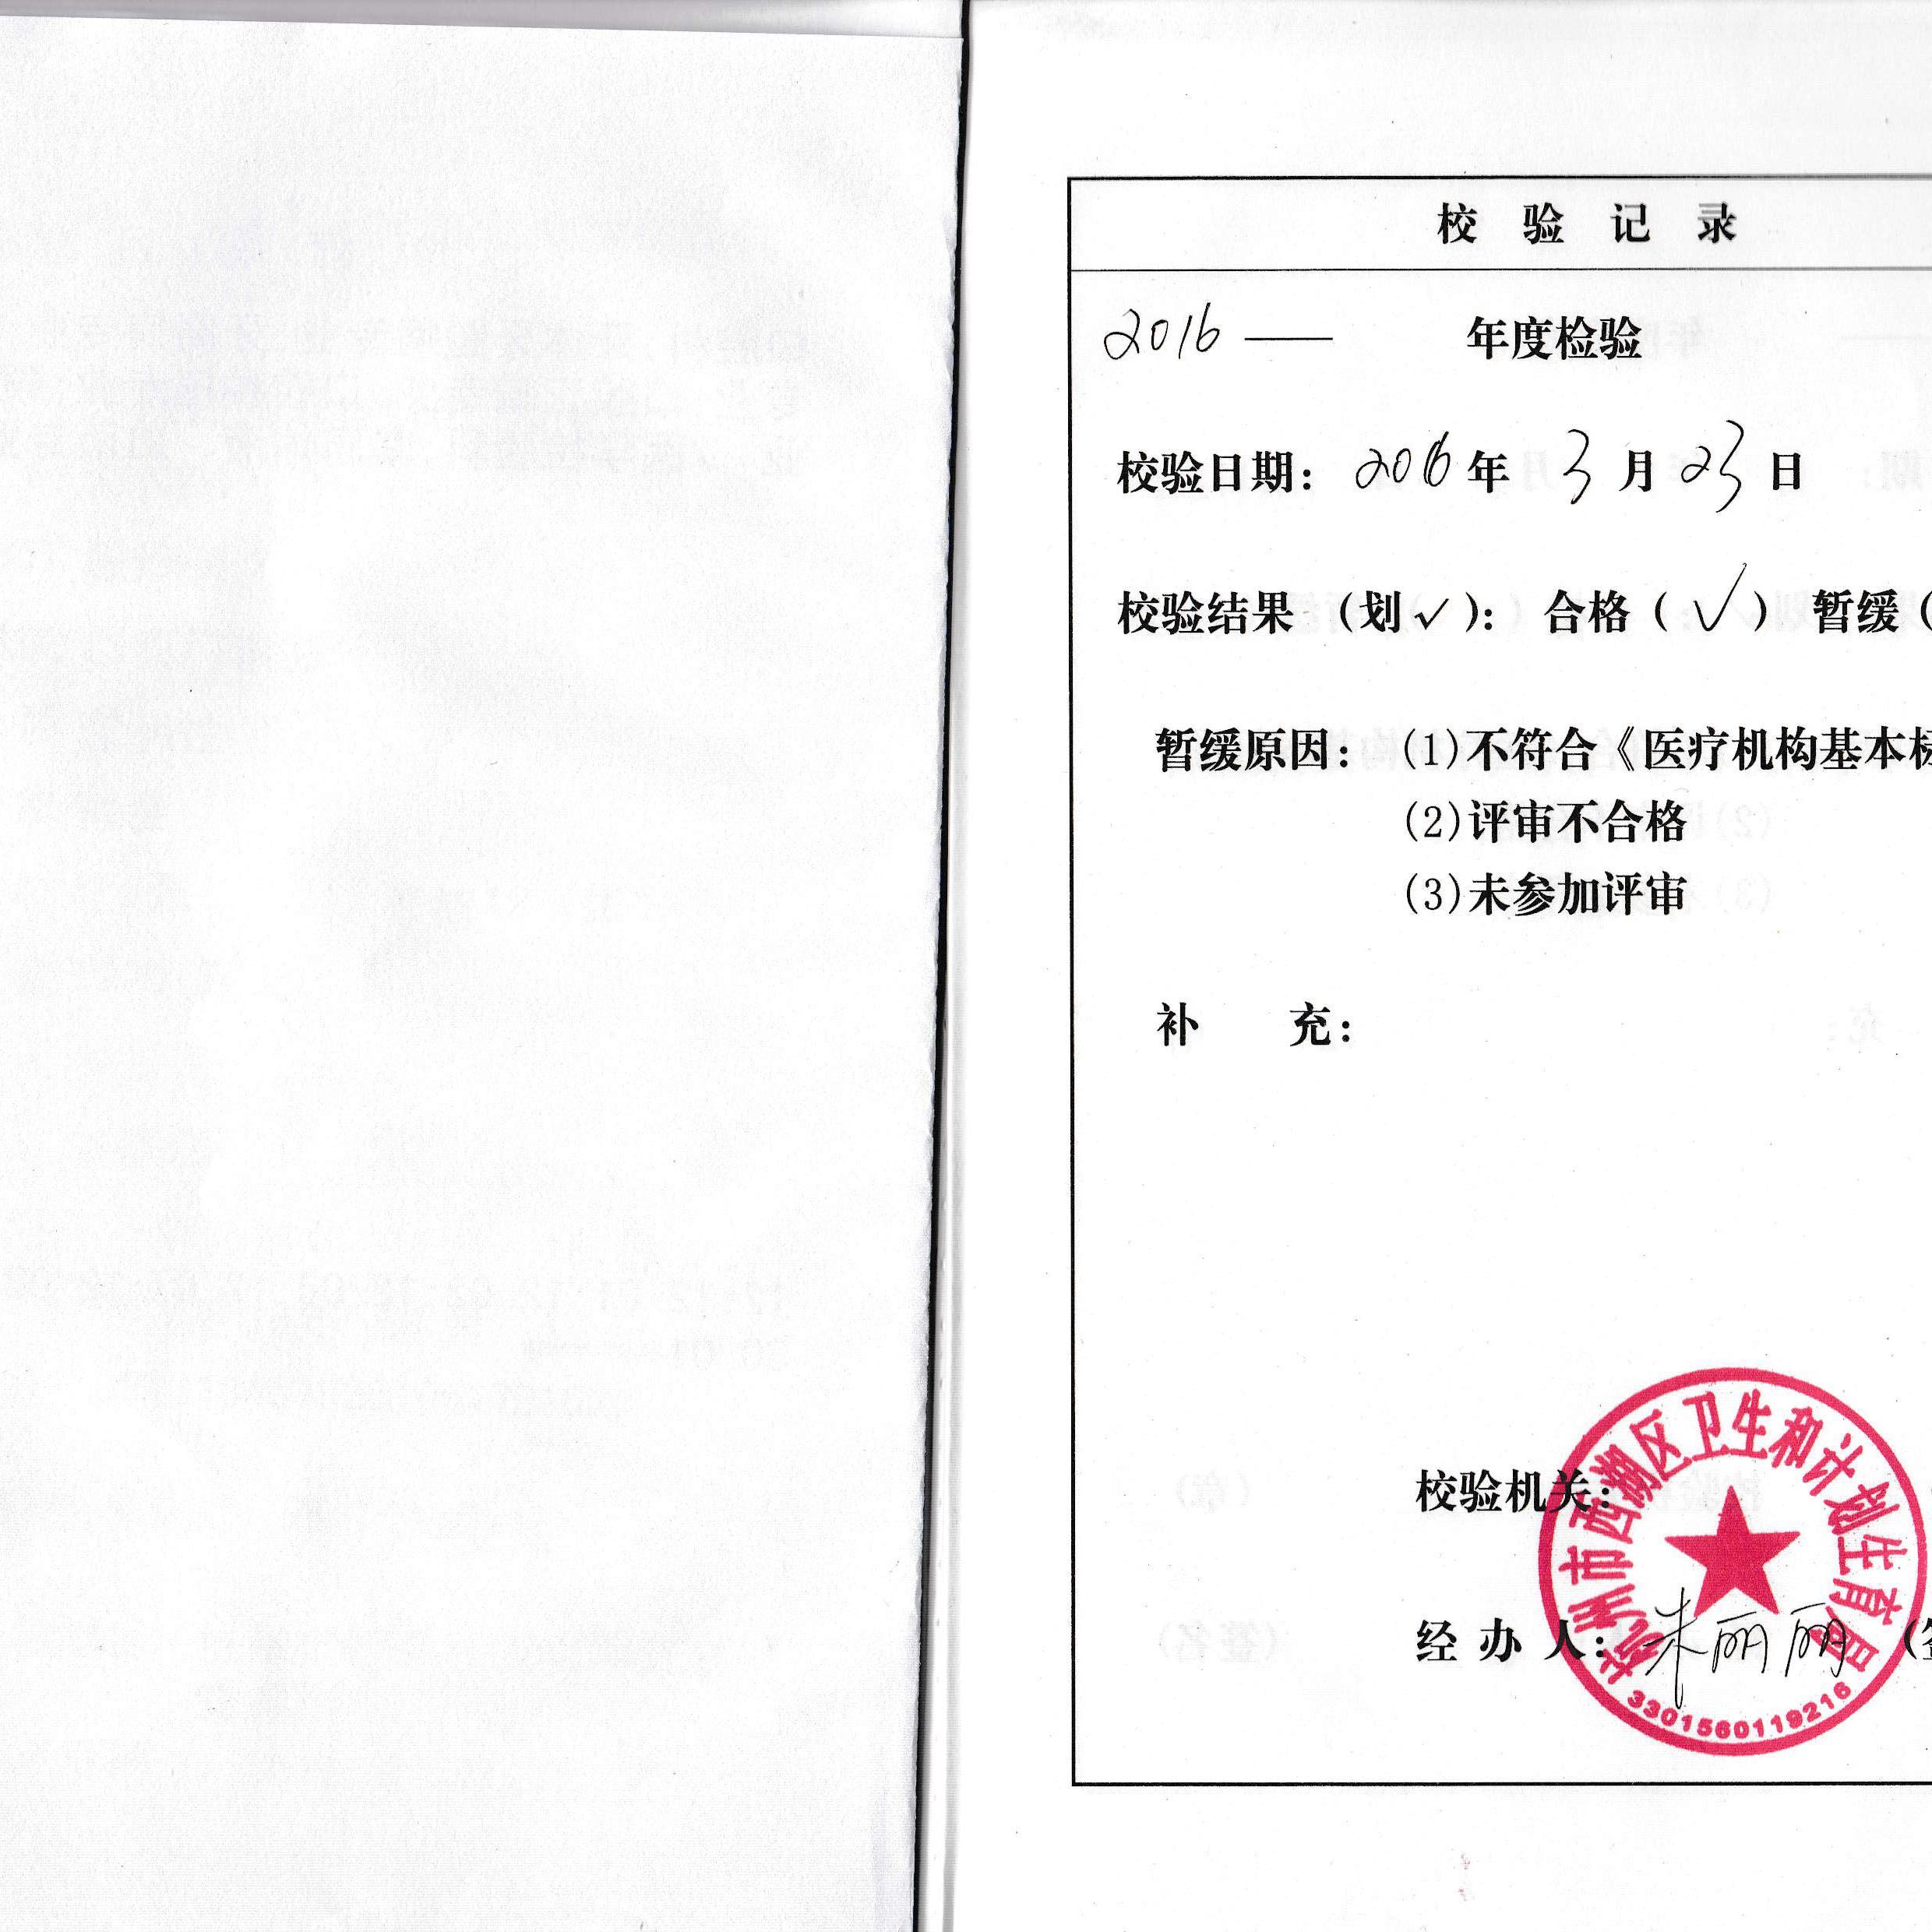 校验记录
2016 —— 年度检验
校验日期: 2016年 3月23日
校验结果 (划✓): 合格(✓) 暂缓(
暂缓原因: (1)不符合《医疗机构基本标
(2)评审不合格
(3)未参加评审
补 充:
校验机关:
杭州市西湖区卫生和计划生育局
经办人: 朱丽丽 (签
3301560119216